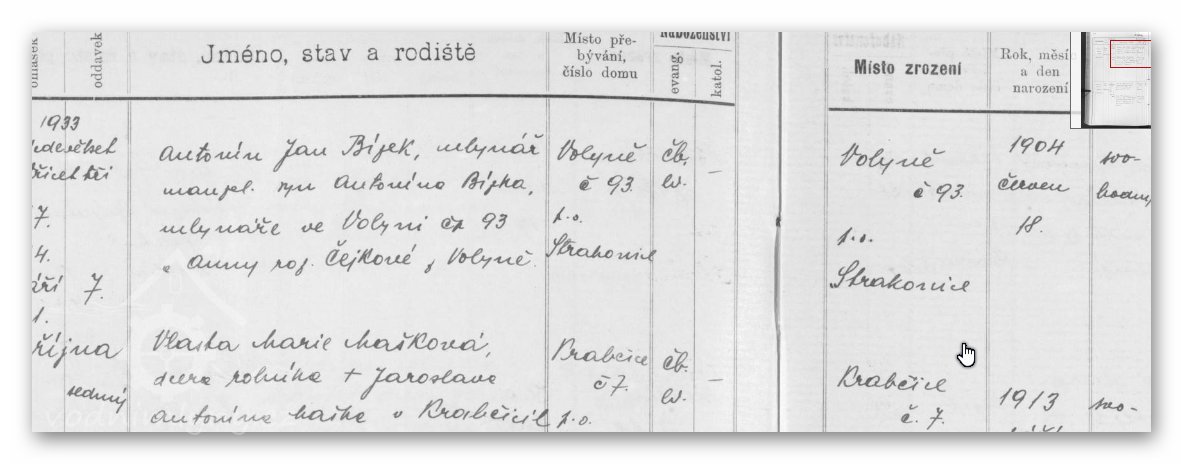 ohlášek
oddavek
Jméno, stav a rodiště
Místo pře-
bývání,
číslo domu
Náboženství
evang.
katol.
Místo zrození
Rok, měsíc
a den
narození
1933
třicet tři
7.
4.
září 7.
1.
října
sedmý
Antonín Jan Bízek, mlynář
manžel. syn Antonína Bízka,
mlynáře ve Volyni čp 93
a Anny roz. Čejkové z Volyně.
Volyně
č 93.
p.o.
Strakonice
čb.
ev.
–
Volyně
č 93.
p.o.
Strakonice
1904
červen
18.
svo-
bodný
Vlasta Marie Mašková,
dcera rolníka + Jaroslava
Antonína Maška v Krabčicích
Krabčice
č 7.
p.o.
čb.
ev.
–
Krabčice
č. 7.
1913
svo-